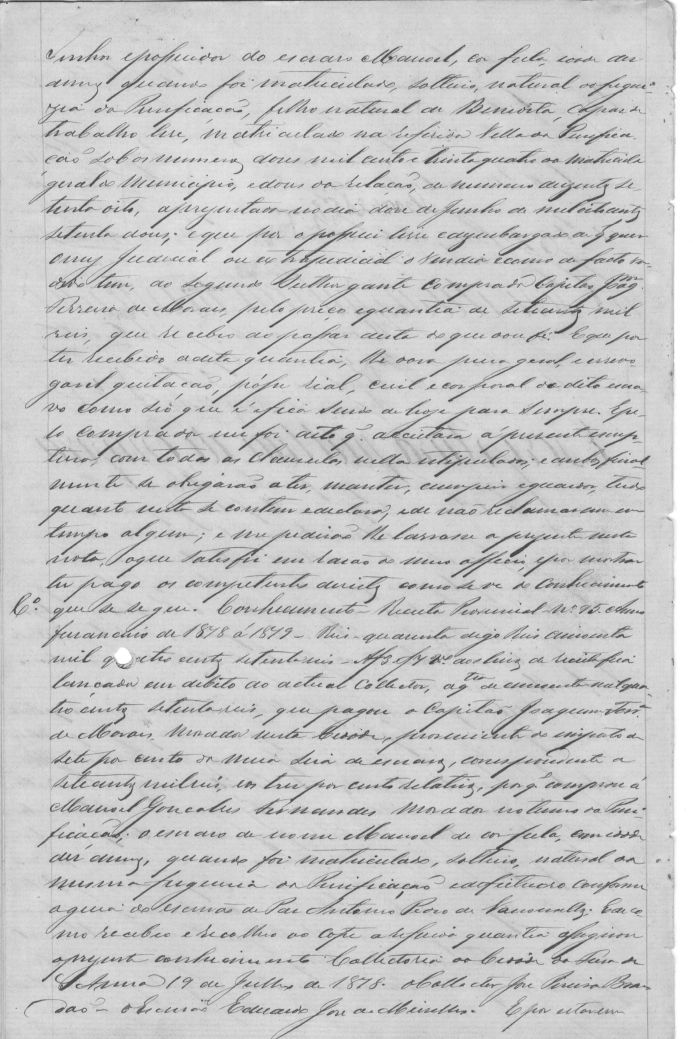 Senhor e possuidor do escravo Manoel, cor fula, idade dez
annos quando foi matriculado, solteiro, natural da fregue-
zia da Purificação, filho natural de Benedita, capaz de
trabalho leve, matriculado na referida Villa da Purifica
cão sob os numeros dous mil cento e trinta quatro da matricula
geral do Municipio, e dous da relação, de numero duzentos se
tenta oito, apresentada no dia doze de Junho de mil oitocentos
setenta dous; e que por o possuir livre e dezembargado de quaes
onus Judicial ou extrajudicial o vendia e como de facto ven
dido tem, ao segundo Outhorgante comprador Capitão Joaqm.
Ferreira de Moraes, pelo preço e quantia de setecentos mil
reis, que recebeo ao passar desta do que dou fé. E que por
ter recebido a dita quantia, lhe dava plena geral, e irrevo
gavel quitação, posse rial, civil e corporal do dito escra
vo como Seo que é e fica sendo de hoje para sempre. E pe-
lo comprador me foi dito q. aceitava a presente escrip-
tura, com todas as clausulas nella estipuladas; e ambos final
mente se obrigarão a ter, manter, cumprir e guardar, tudo
quanto nesta se contem e declara, e de não reclamarem em
tempo algum; e me pedirão lhe lavrasse a prezente nesta
nota, o que satisfiz em razão de meo officio, e por mostrar
ter pago os competentes direitos como se ve do conhecimento
Co. que se segue. Conhecimento - Receita Provincial - No. 95. Anno
financeiro de 1878 á 1879 - Reis - quarenta digo Reis cincoenta
mil quatro centos setenta reis - Afs do livro de receita fica
lançada em debito ao actual Collector, a qtia de cincoenta mil qua
tro centos setenta reis, que pagou o Capitão Joaquim Ferra.
de Moraes, morador nesta Cidade, proveniente do imposto de
sete por cento da meia siza de escravos, correspondente a
setecentos mil reis, e os tres por cento relativos, por q. comprou á
Manoel Gonçalves Fernandes morador no termo da Puri
ficação; o escravo de nome Manoel de cor fula, com idade
dez annos, quando foi matriculado, solteiro, natural da
mesma freguezia da Purificação e de fituroso conforme
a guia do escrivão de Paz Antonio Pedro de Vasconcellos. E de co
mo recebeo e recolheo ao cofre a referida quantia assignou
a prezente conhecimento. Collectoria da Cidade da Feira de
S. Anna 19 de Julho de 1878. O Collector José Pereira Bran
dão - O Escrivão Eduardo José de Meirelles. E por estarem